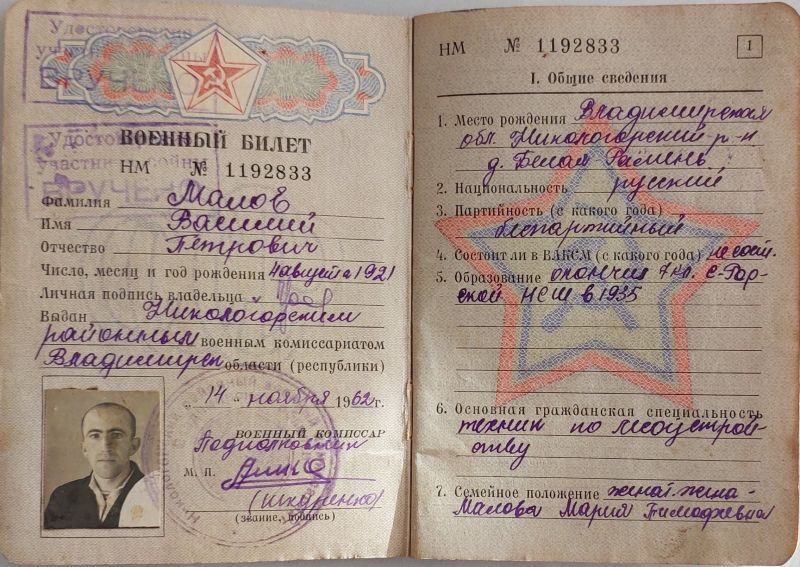 Удостоверение
участника войны
ВРУЧЕНО
Удостоверение
участника войны
ВРУЧЕНО
ВОЕННЫЙ БИЛЕТ
НМ № 1192833
Фамилия Малов
Имя Василий
Отчество Петрович
Число, месяц и год рождения 4 августа 1921
Личная подпись владельца
Выдан Никологорским
районным военным комиссариатом
Владимирск области (республики)
„14" ноября 1962 г.
ВОЕННЫЙ КОМИССАР
Подполковник
М. П.
(Шкуренко)
(звание, подпись)
НМ № 1192833
1
I. Общие сведения
1. Место рождения Владимирская
обл. Никологорский р-н
д. Белая Рамень
2. Национальность русский
3. Партийность (с какого года)
беспартийный
4. Состоит ли в ВЛКСМ (с какого года) не сост.
5. Образование окончил 7 кл. С-Гор-
ской НСШ в 1935
6. Основная гражданская специальность
техник по лесоустрой-
ству
7. Семейное положение женат. жена-
Малова Мария Тимофеевна